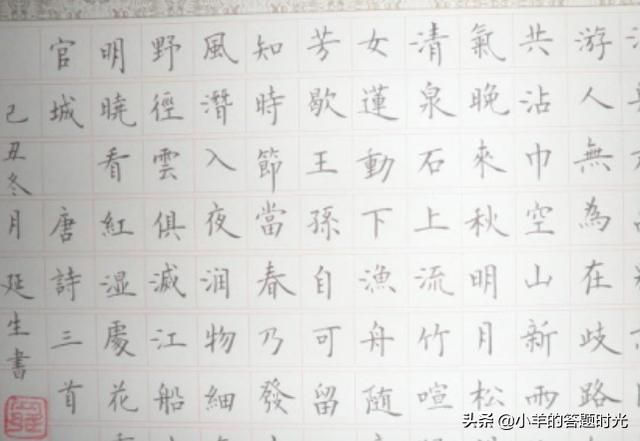 游人無為在歧路
共沾巾空山新雨
氣晚來秋明月松
清泉石上流竹喧
女蓮動下漁舟随
芳歇王孫自可留
知時節當春乃發
風潛入夜润物細
野徑雲俱滅江船
明曉看紅湿處花
官城 唐詩三首
己丑冬月 延生書
头条 @小羊的答题时光